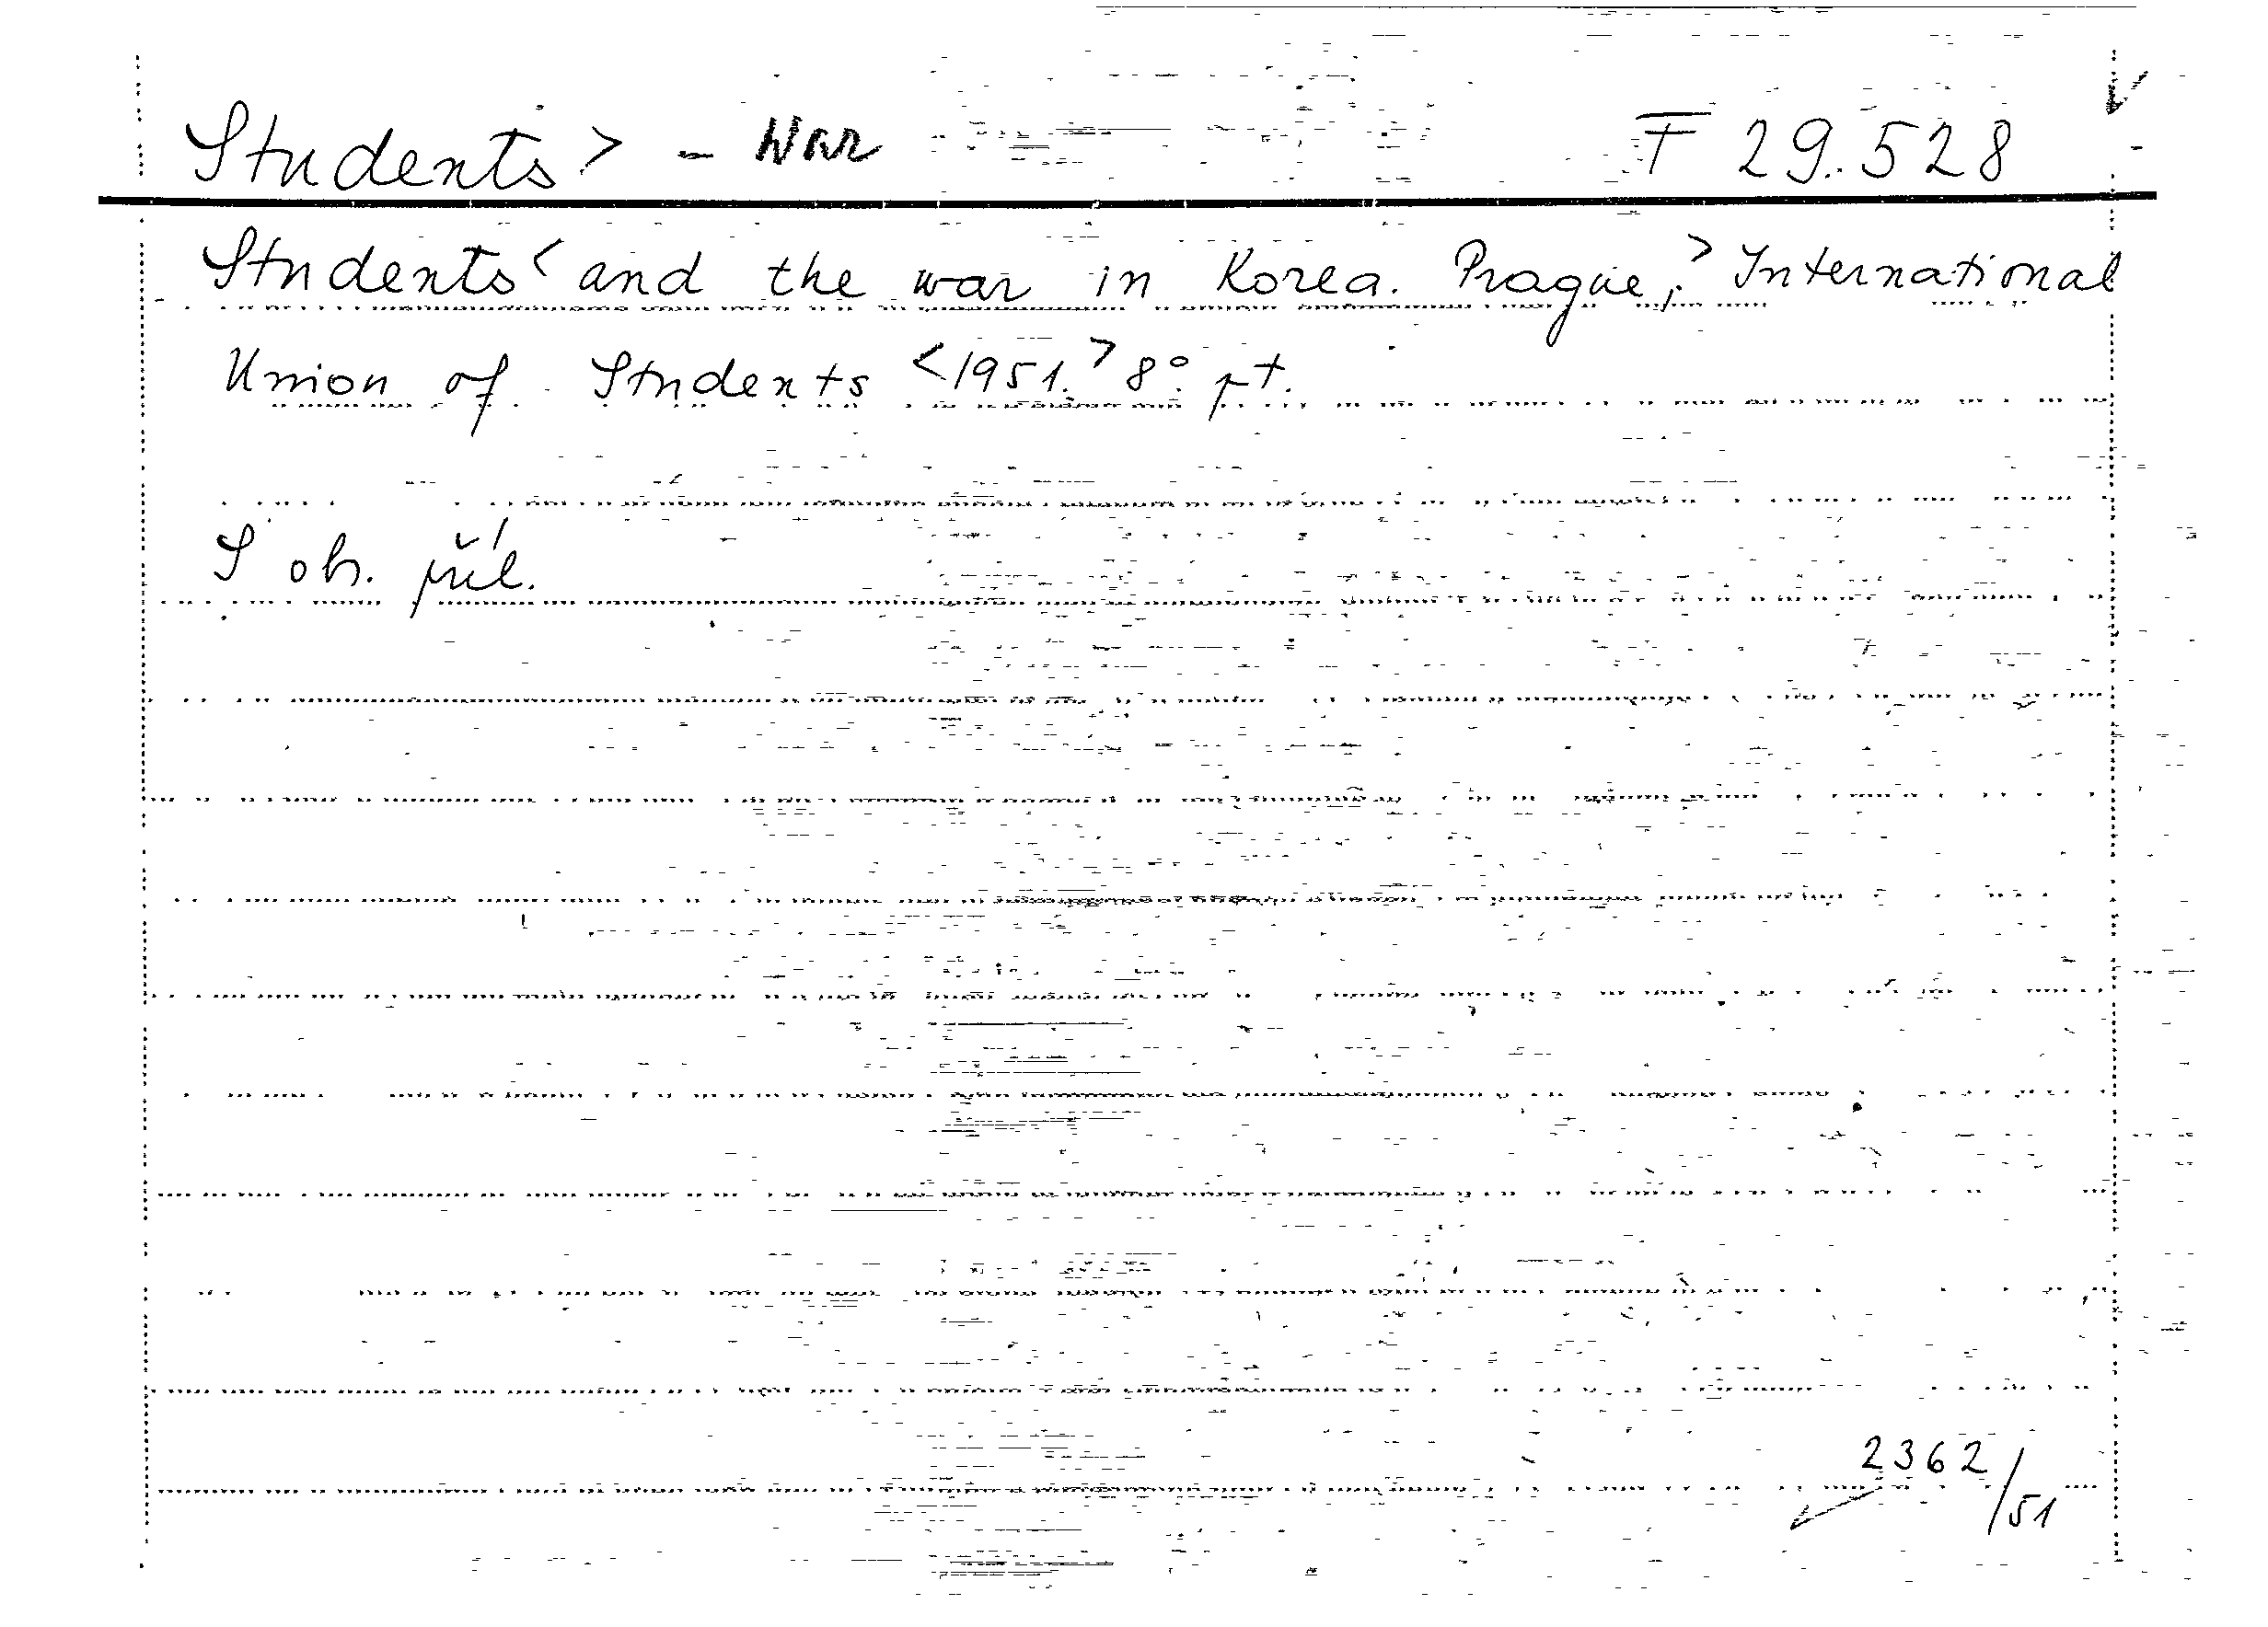 Students > - War F 29.528
Students < and the war in Korea. Prague, > International
Union of Students < 1951. > 8°. pt.
S ob. příl.
2362/51